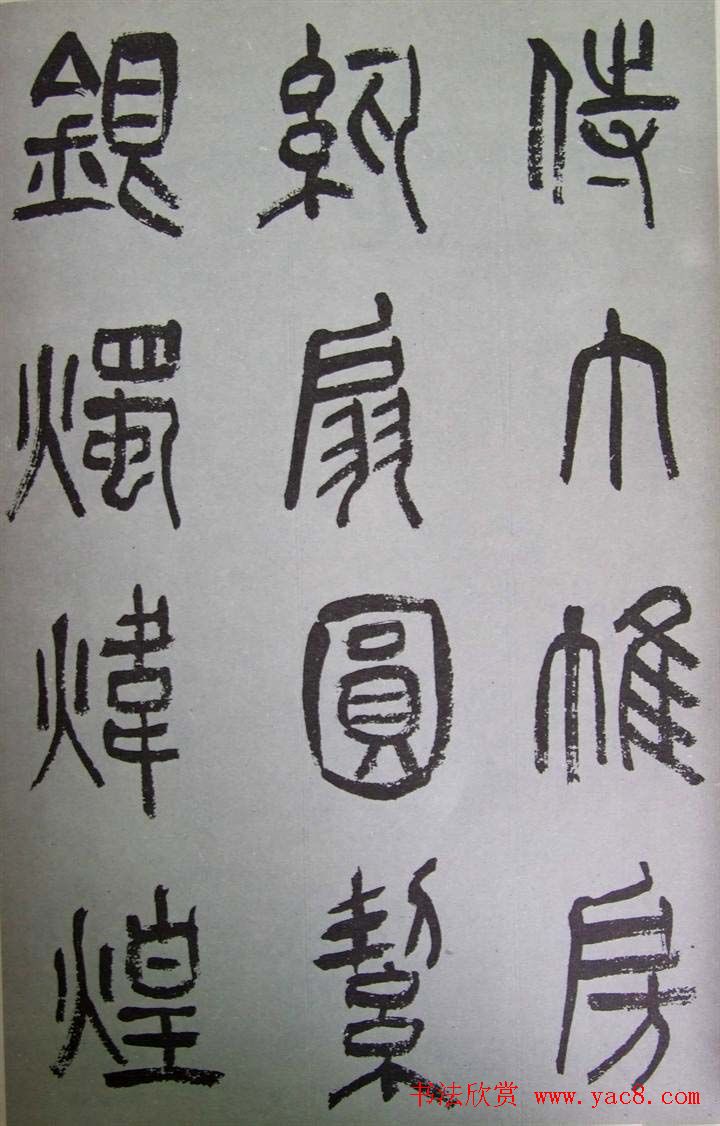 侍巾帷房
紈扇圓絜
銀燭煒煌
书法欣赏 www.yac8.com